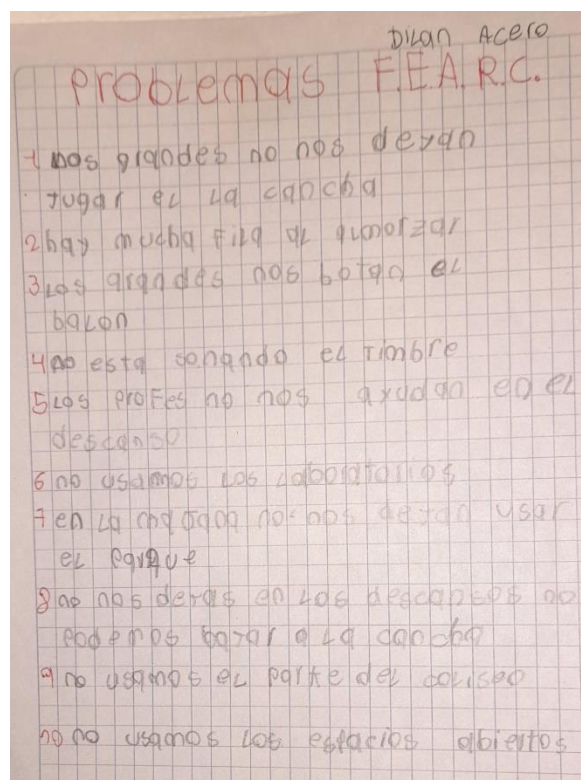 Dilan Acero
Problemas F.E.A.R.C.
1 Los grandes no nos deyan
jugar el la cancha
2 hay mucha fila al aumorzar
3 Los grandes nos botan el
balon
4 no esta sonando el timbre
5 Los profes no nos ayudan en el
descanso
6 no usamos los laboratorios
7 en la no nos deyan usar
el parque
8 no nos en los descansos no
podemos bajar a la cancha
9 no usamos el parke del coliseo
10 no usamos los espacios abiertos